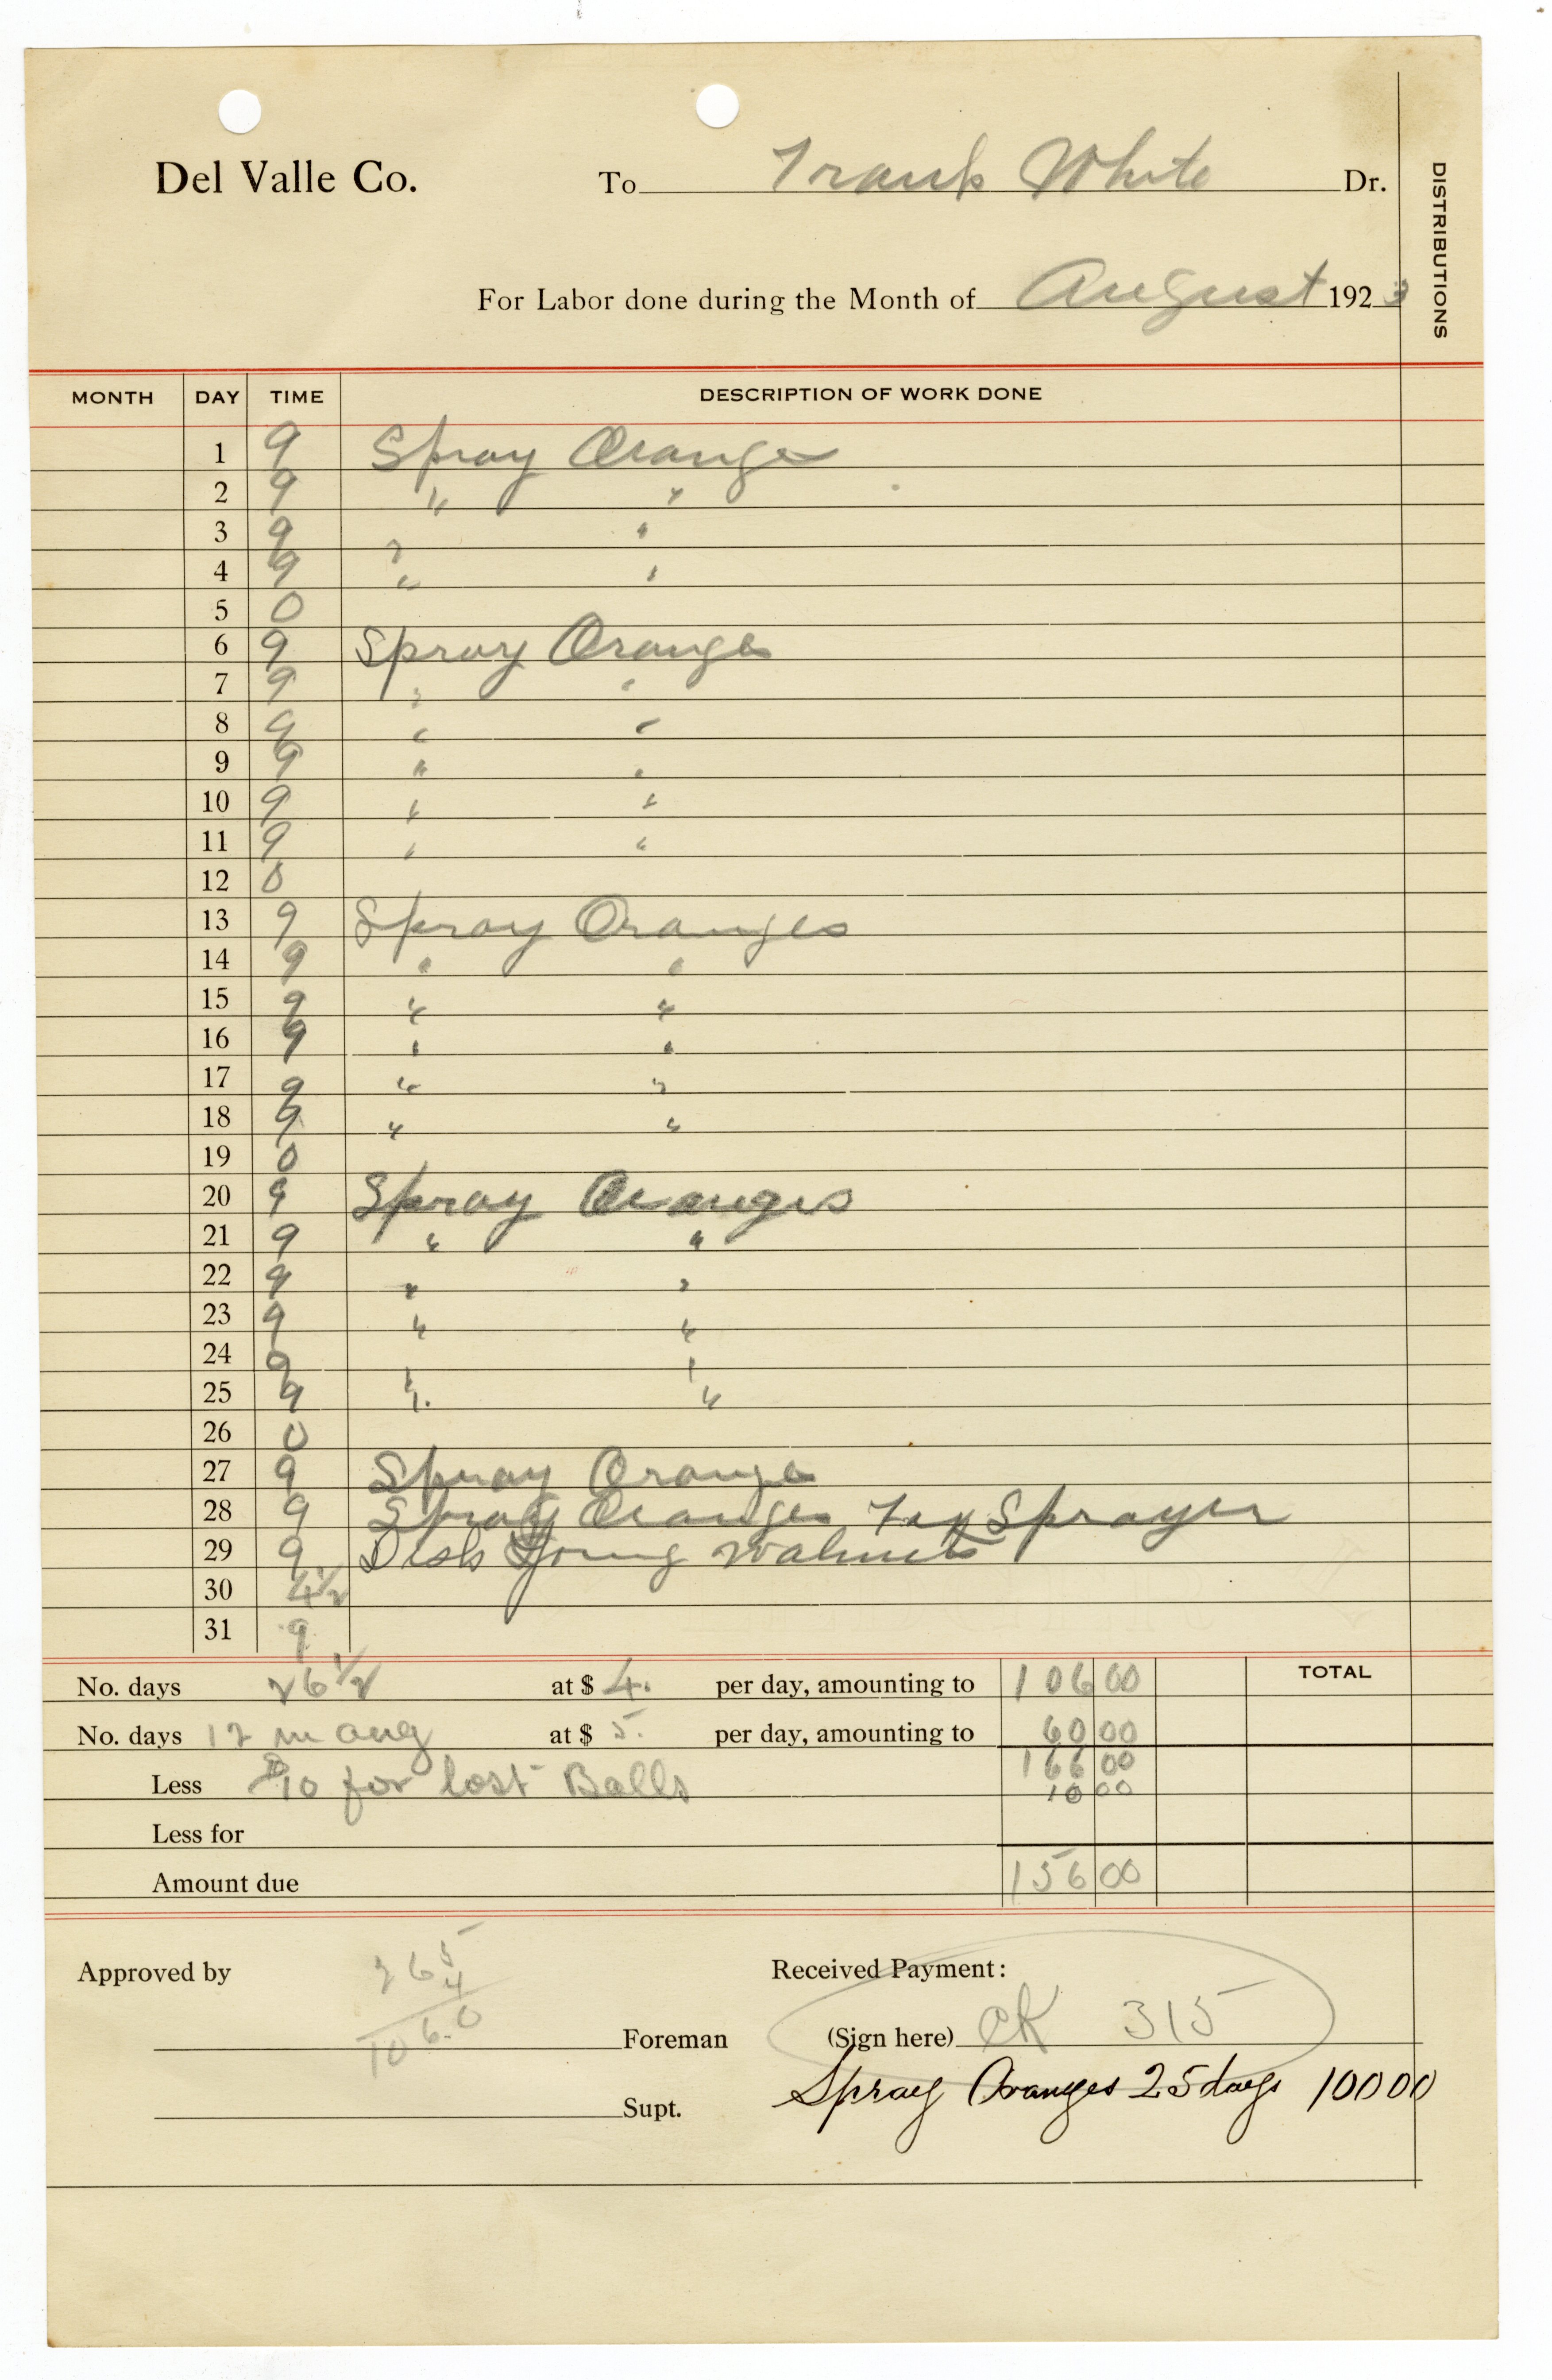 Del Valle Co. To Frank White Dr.
DISTRIBUTIONS
For Labor done during the Month of August 1923
MONTH DAY TIME DESCRIPTION OF WORK DONE
1 9 Spray Oranges
2 9 " "
3 9 " "
4 9 " "
5 0
6 9 Spray Oranges
7 9 " "
8 9 " "
9 9 " "
10 9 " "
11 9 " "
12 0
13 9 Spray Oranges
14 9 " "
15 9 " "
16 9 " "
17 9 " "
18 9 " "
19 0
20 9 Spray Oranges
21 9 " "
22 9 " "
23 9 " "
24 9 " "
25 9 " "
26 0
27 9 Spray Oranges
28 9 Spray Oranges Sprayer
29 9 Disk Young Walnuts
30 4½
31 9
No. days 26 1/2 at $ 4. per day, amounting to 106 00 TOTAL
No. days 12 m at $ 5. per day, amounting to 60 00
166 00
Less $10 for lost Balls 10 00
Less for
Amount due 156 00
Approved by 265 Received Payment:
4
106.0 Foreman (Sign here) CK 315
Supt. Spray Oranges 25 days 100 00